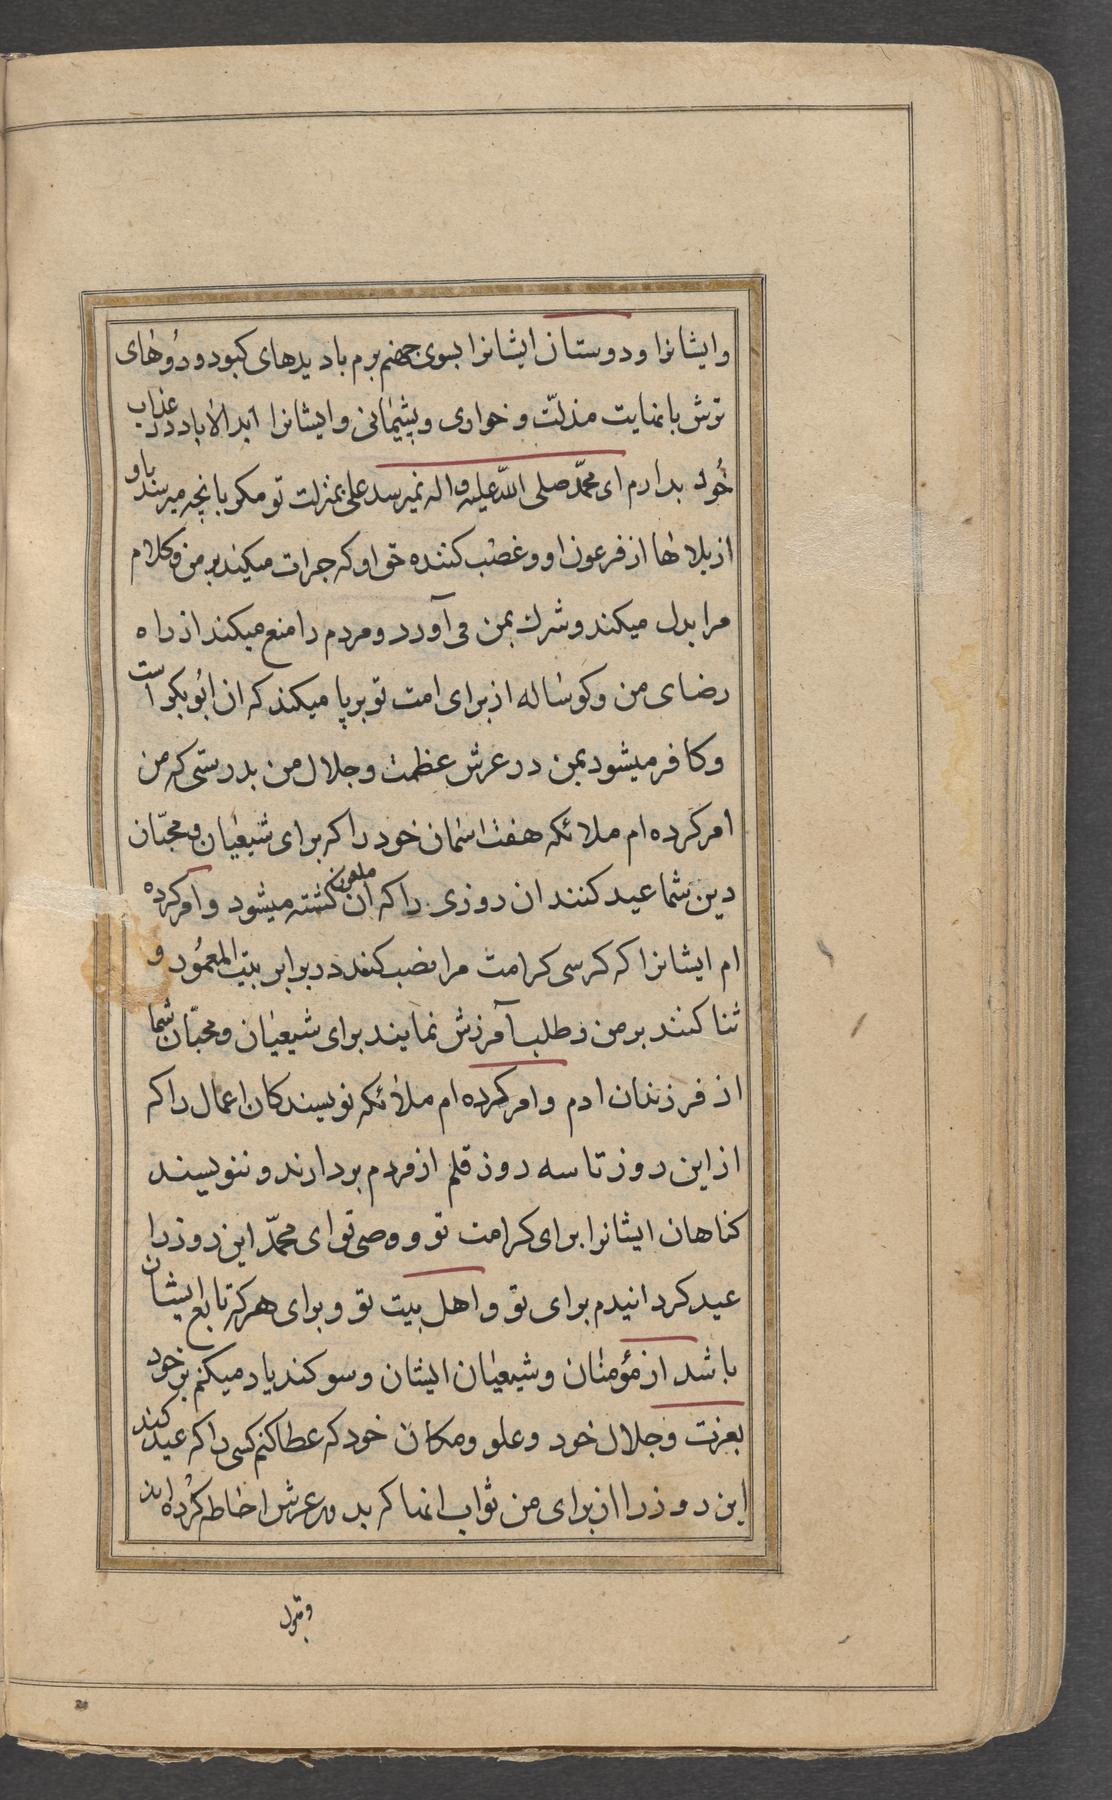 وایشانرا ودوستان ایشانرا بسوی جهنم برم بادیدهای کبود و رُوهای
ترش بانهایت مذلّت و خواری و پشیمانی و ایشانرا ابد الاباد در عذاب
خُود بدارم ای محمّد صلی الله علیه و اله نمیرسد علی بمنزلت تو مکر بانچه میرسد باو
از بلاها از فرعون او و غصب کننده حق او که جرات میکند بر من و کلام
مرا بدل میکند و شرك بمن می آورد و مردم را منع میکند از راه
رضای من و کوساله از برای امت تو برپا میکند که ان ابُوبکر است
و کافر میشود بمن در عرش عظمت و جلال من بدرستی که من
امر کرده ام ملائکه هفت اسمان خود را که برای شیعیان و محبّان
دین شما عید کنند ان روزی را که ان ملعون کشته میشود و امر کرده
ام ایشانرا که کرسی کرامت مرا نصب کنند در برابر بیت المعمُور و
ثنا کنند بر من و طلب آمرزش نمایند برای شیعیان و محبّان شما
از فرزندان ادم و امر کرده ام ملائکه نویسندکان اعمال را که
از این روز تا سه روز قلم از مردم بردارند و ننویسند
کناهان ایشانرا برای کرامت تو و وصی تو ای محمّد این روز را
عید کردانیدم برای تو و اهل بیت تو و برای هر که تابع ایشان
باشد از مؤمنان و شیعیان ایشان و سوکند یاد میکنم بر خود
بعزت و جلال خود و علو و مکان خود که عطا کنم کسی را که عید کند
این روز را از برای من ثواب انها که بدور عرش احاطه کرده اند
و قبول